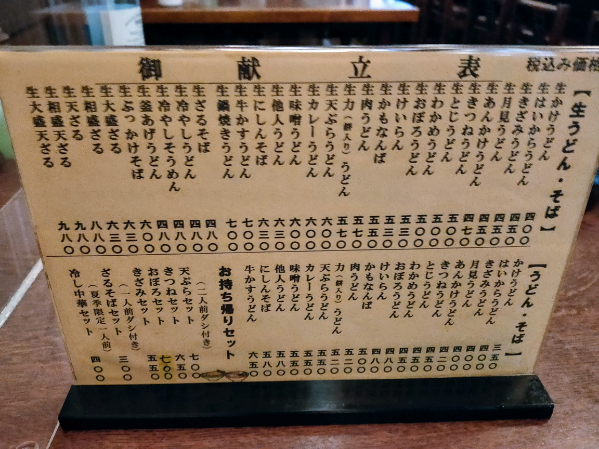 御献立表
税込み価格
【生うどん・そば】
生かけうどん 四〇〇
生はいからうどん 四五〇
生きざみうどん 四五〇
生月見うどん 四五〇
生あんかけうどん 四五〇
生きつねうどん 四七〇
生とじうどん 五〇〇
生わかめうどん 五〇〇
生おぼろうどん 五三〇
生けいらん 五三〇
生かもなんば 五五〇
生肉うどん 五七〇
生力(餅入り)うどん 五七〇
生天ぷらうどん 六〇〇
生カレーうどん 六〇〇
生味噌うどん 六〇〇
生他人うどん 六三〇
生にしんそば 六三〇
生牛かすうどん 七〇〇
生鍋焼きうどん 七〇〇
生ざるそば 四八〇
生冷やしうどん 四八〇
生冷やしそうめん 四八〇
生釜あげうどん 四八〇
生ぶっかけそば 六〇〇
生大盛ざる 六三〇
生相盛ざる 六三〇
生天ざる 八八〇
生相盛天ざる 九八〇
生大盛天ざる 九八〇
【うどん・そば】
かけうどん 三五〇
はいからうどん 四〇〇
きざみうどん 四〇〇
月見うどん 四〇〇
あんかけうどん 四〇〇
きつねうどん 四二〇
とじうどん 四五〇
わかめうどん 四五〇
おぼろうどん 四八〇
けいらん 四八〇
かもなんば 五〇〇
肉うどん 五二〇
力(餅入り)うどん 五二〇
天ぷらうどん 五五〇
カレーうどん 五五〇
味噌うどん 五五〇
他人うどん 五八〇
にしんそば 五八〇
牛かすうどん 六五〇
お持ち帰りセット
(二人前ダシ付き)
天ぷらセット 七〇〇
きつねセット 六五〇
おぼろセット 七〇〇
きざみセット 五五〇
(一人前ダシ付き)
ざるそばセット 三〇〇
(夏季限定一人前)
冷し中華セット 四〇〇